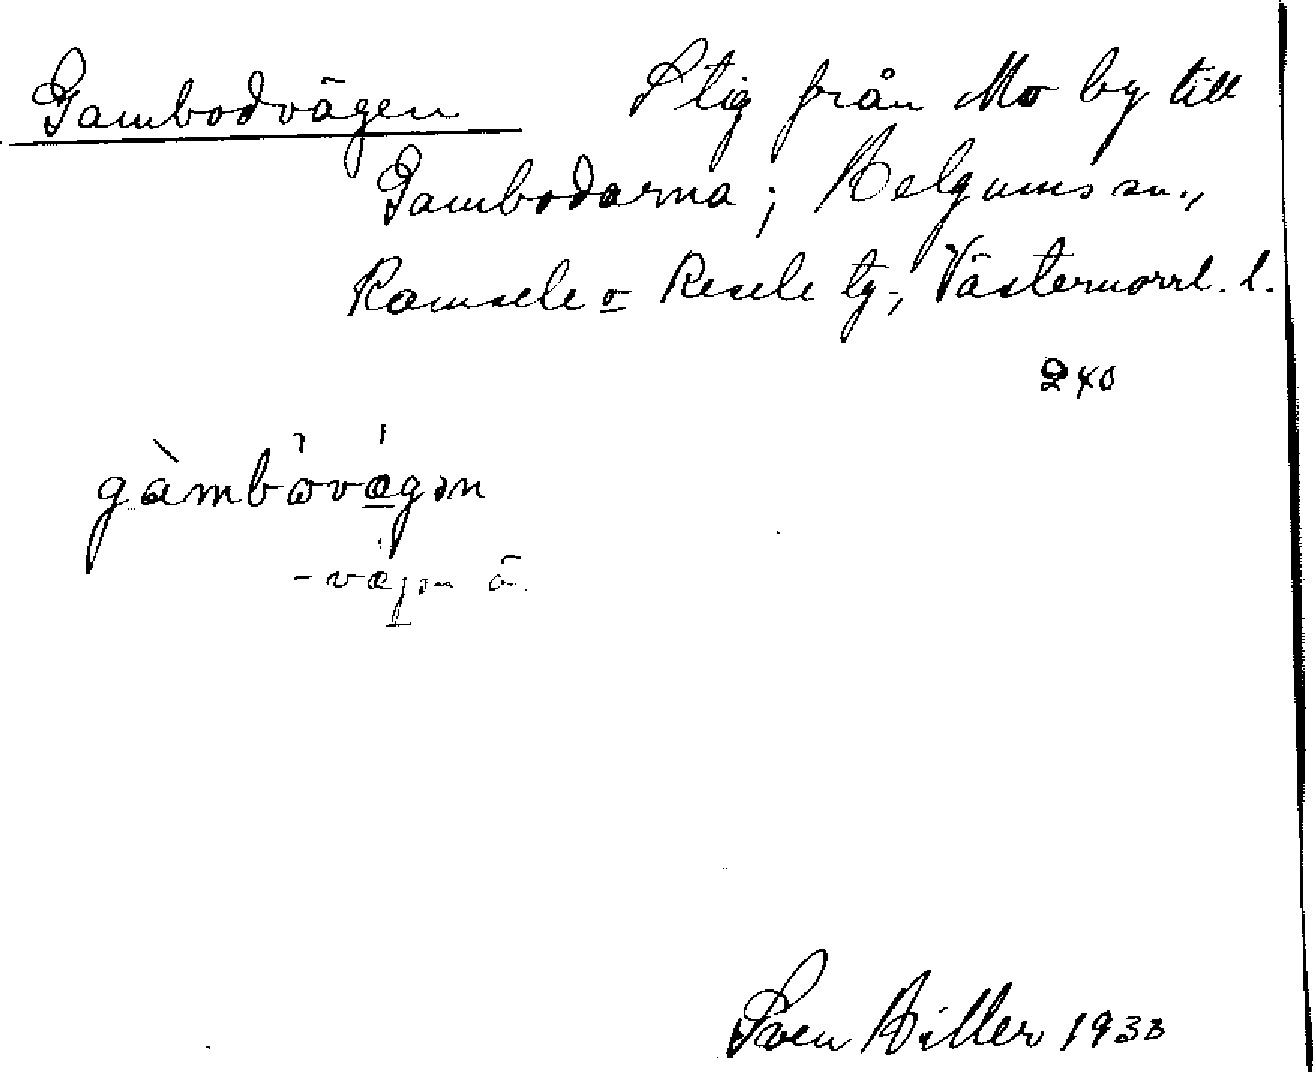 Gambodvägen Stig från Mo by till
Gambodarna; Helgums sn.,
Ramsele o Resele tg., Västernorrl. l.
240
gàmbòvǽgən
-vægən
Sven Hiller 1933